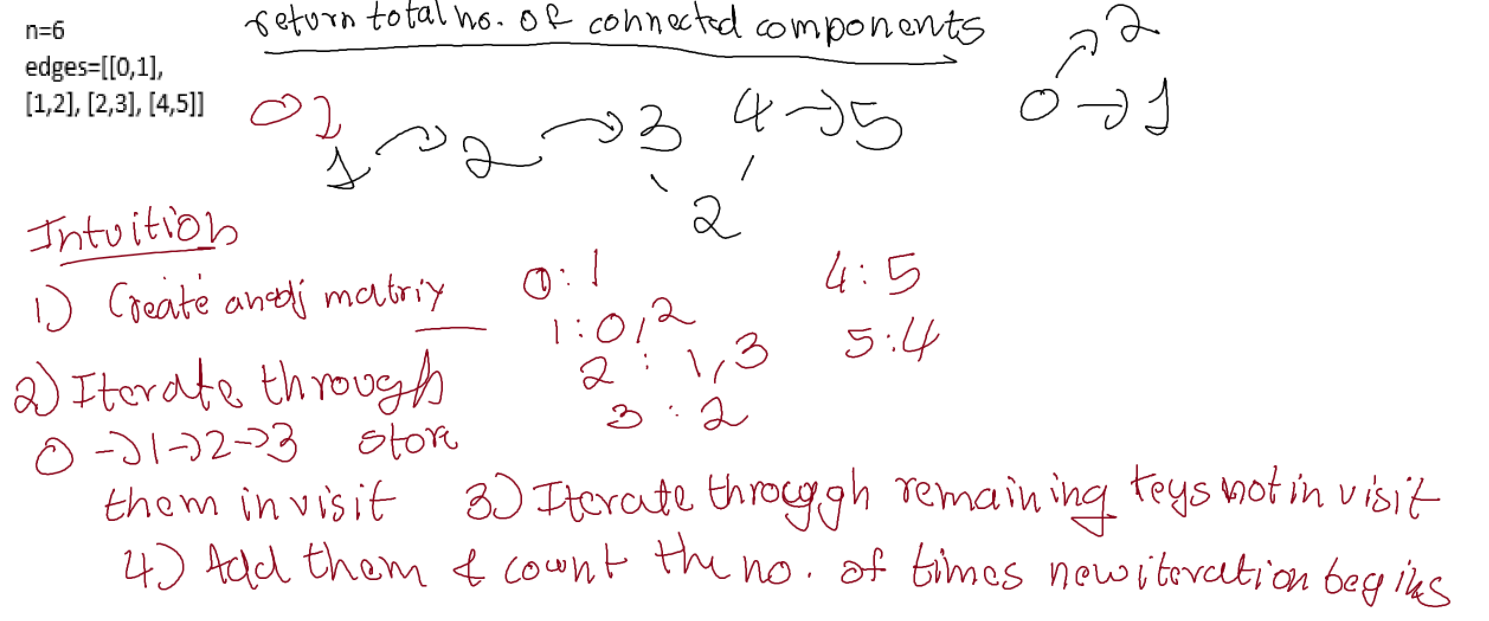 return total no. of connected components
n=6
edges=[[0,1],
[1,2], [2,3], [4,5]]
0 1
1 → 2 → 3 4 → 5
2
0 → 2
0 → 1
Intuition
1) Create an adj matrix
0: 1
1: 0, 2
2: 1, 3
3: 2
4: 5
5: 4
2) Iterate through
0 → 1 → 2 → 3 store
them in visit
3) Iterate through remaining keys not in visit
4) Add them & count the no. of times new iteration begins